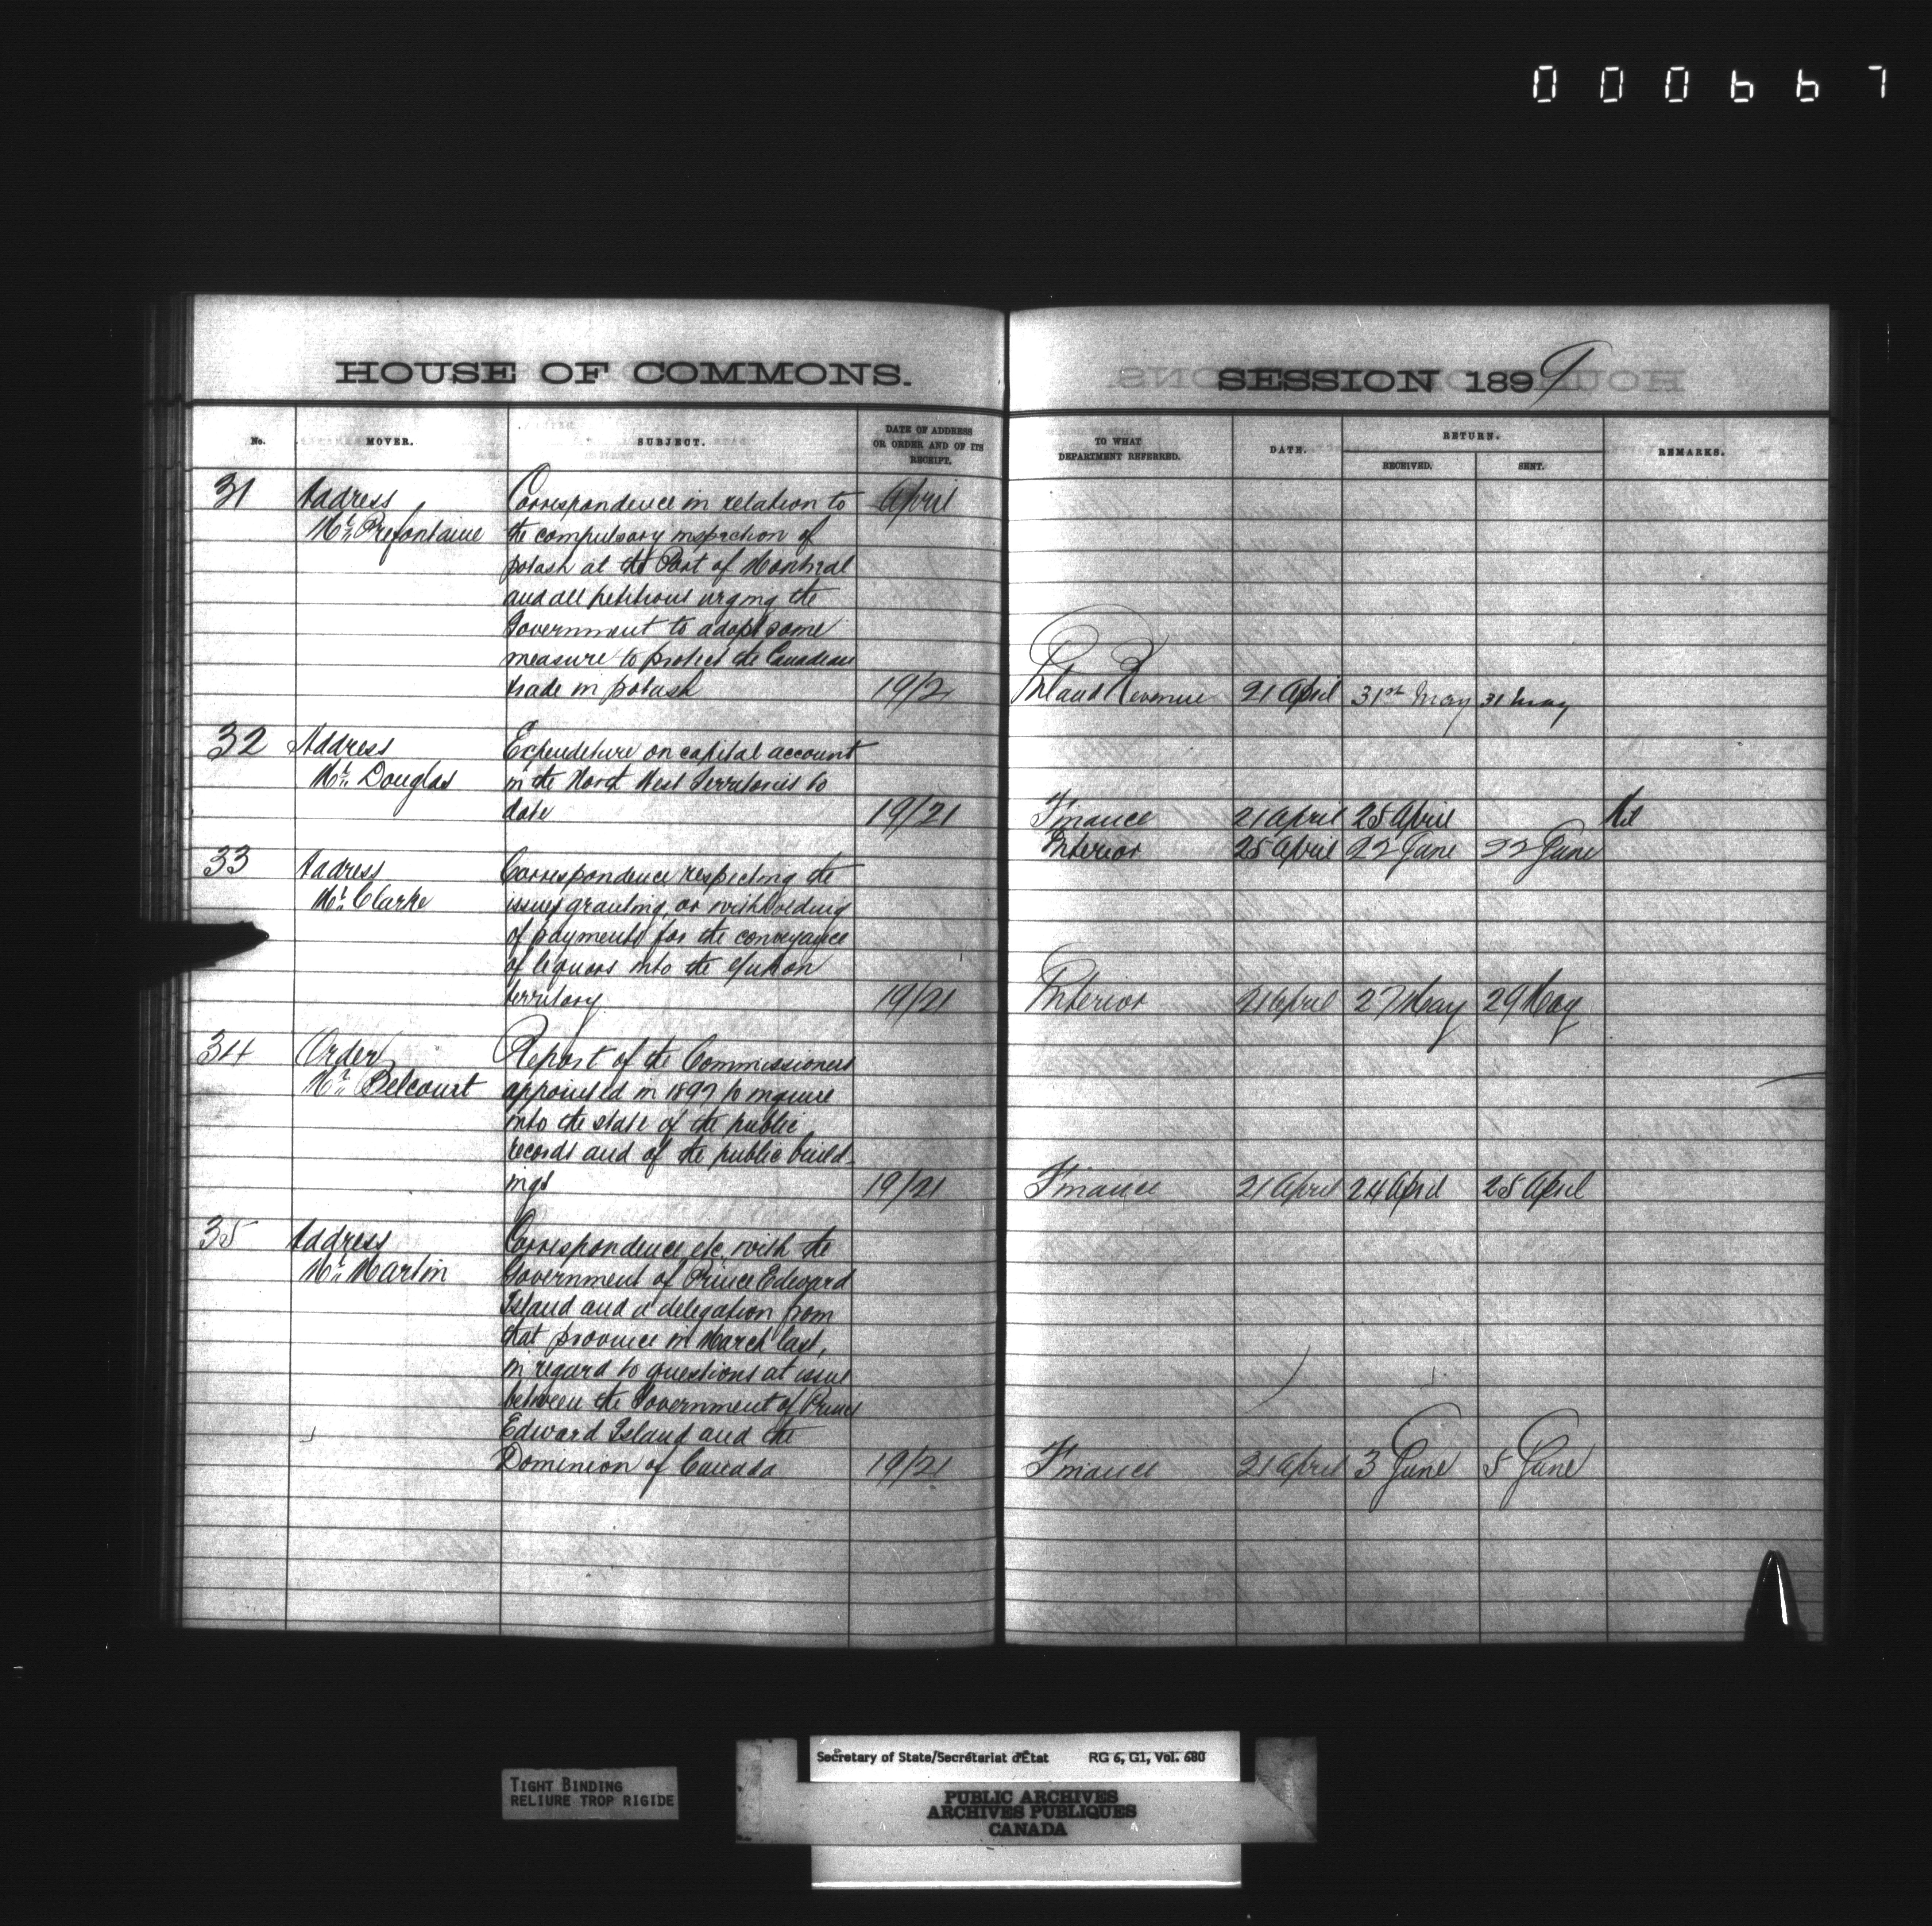 000667
HOUSE OF COMMONS.
No. MOVER. SUBJECT. DATE OF ADDRESS OR ORDER AND OF ITS RECEIPT.
31 Address Correspondence in relation to April
Mr. Prefontaine the compulsory inspection of
potash at the Port of Montreal
and all petitions urging the
Government to adopt some
measure to protect the Canadian
trade in potash 19/21
32 Address Expenditure on capital account
Mr. Douglas in the North West Territories to
date 19/21
33 Address Correspondence respecting the
Mr. Clarke issuing granting or withholding
of payments for the conveyance
of liquors into the Yukon
territory 19/21
34 Order Report of the Commissioners
Mr. Belcourt appointed in 1897 to inquire
into the state of the public
records and of the public build-
ings 19/21
35 Address Correspondence etc. with the
Mr. Martin Government of Prince Edward
Island and a delegation from
that province in March last,
in regard to questions at issue
between the Government of Prince
Edward Island and the
Dominion of Canada 19/21
SESSION 1899
TO WHAT DEPARTMENT REFERRED. DATE. RETURN. RECEIVED. SENT. REMARKS.
Inland Revenue 21 April 31st May 31 May
Finance 21 April 25 April Nil
Interior 25 April 22 June 22 June
Interior 21 April 27 May 29 May
Finance 21 April 24 April 25 April
Finance 21 April 3 June 5 June
TIGHT BINDING
RELIURE TROP RIGIDE
Secretary of State/Secrétariat d'État RG 6, G1, Vol. 680
PUBLIC ARCHIVES
ARCHIVES PUBLIQUES
CANADA